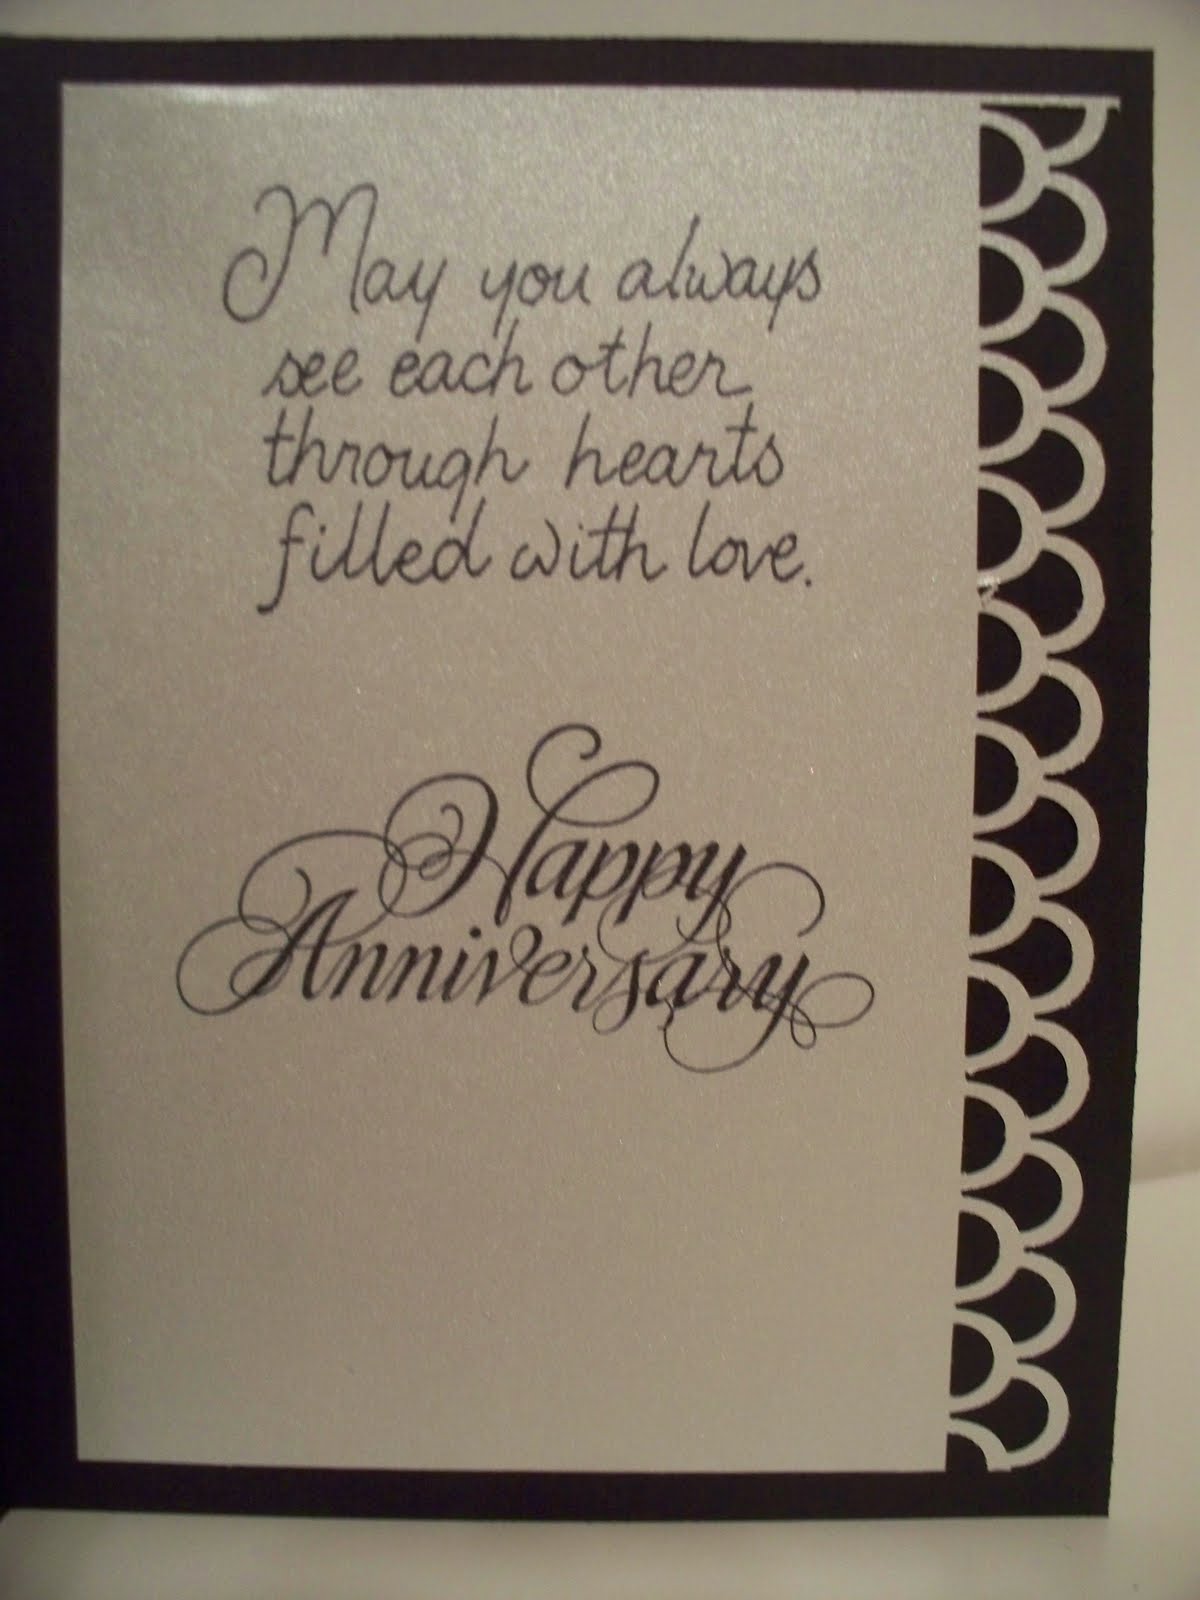 May you always
see each other
through hearts
filled with love.
Happy
Anniversary